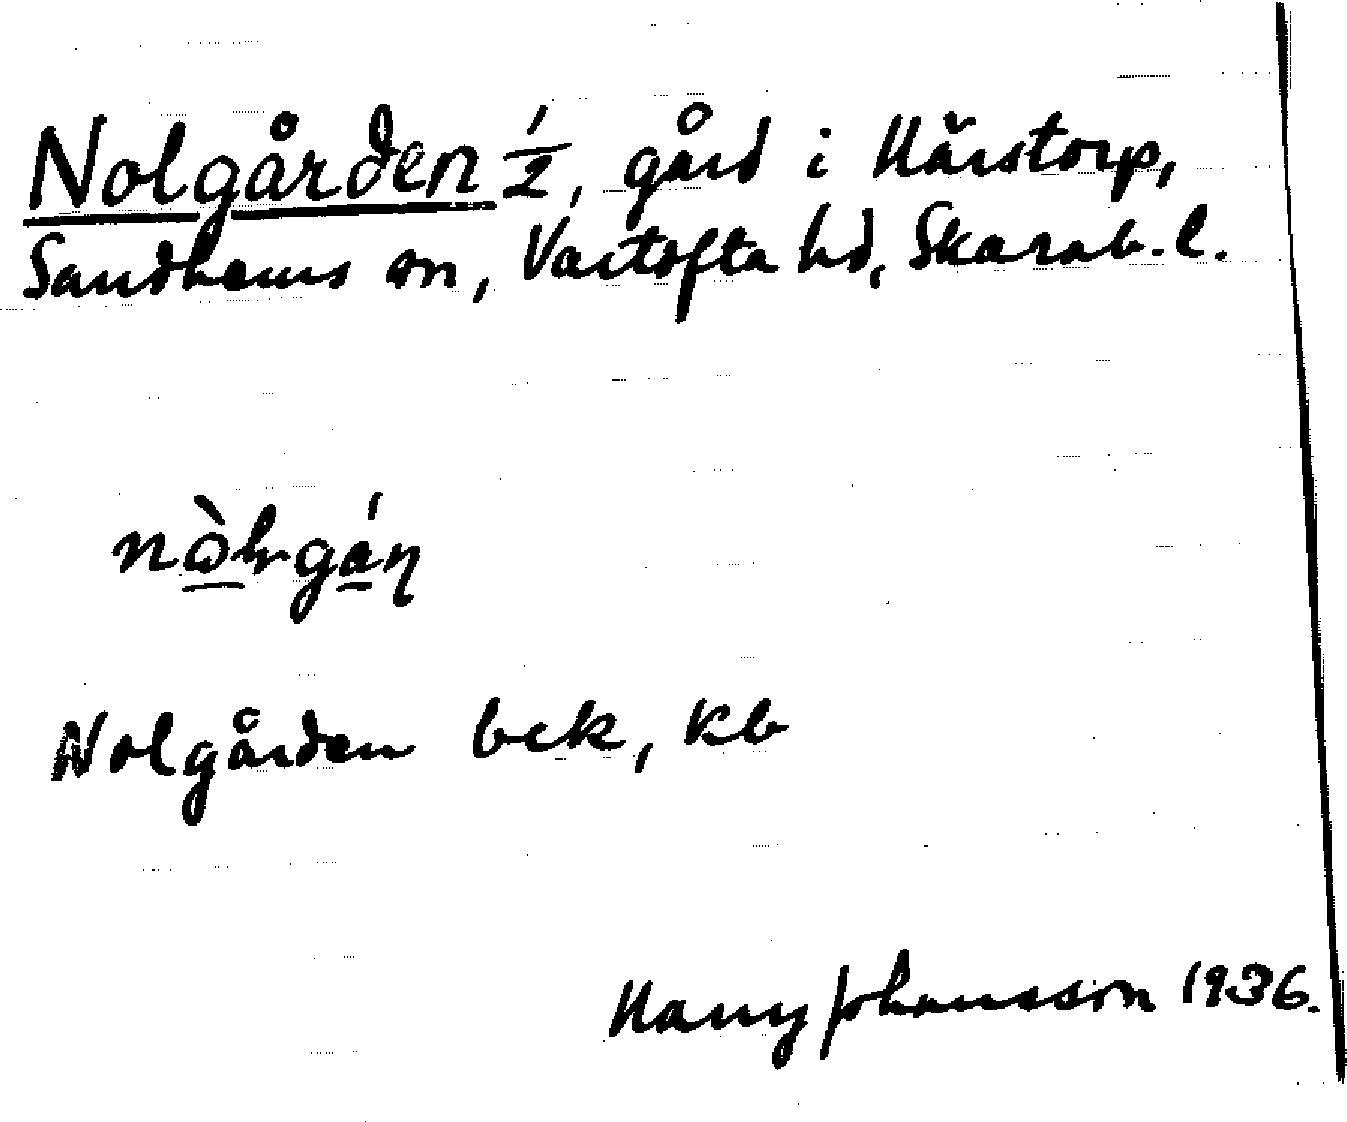 Nolgården ½, gård i Härstorp,
Sandhems sn, Vartofta hd, Skarab. l.
Nolgården bek, kb
Harry Johansson 1936.